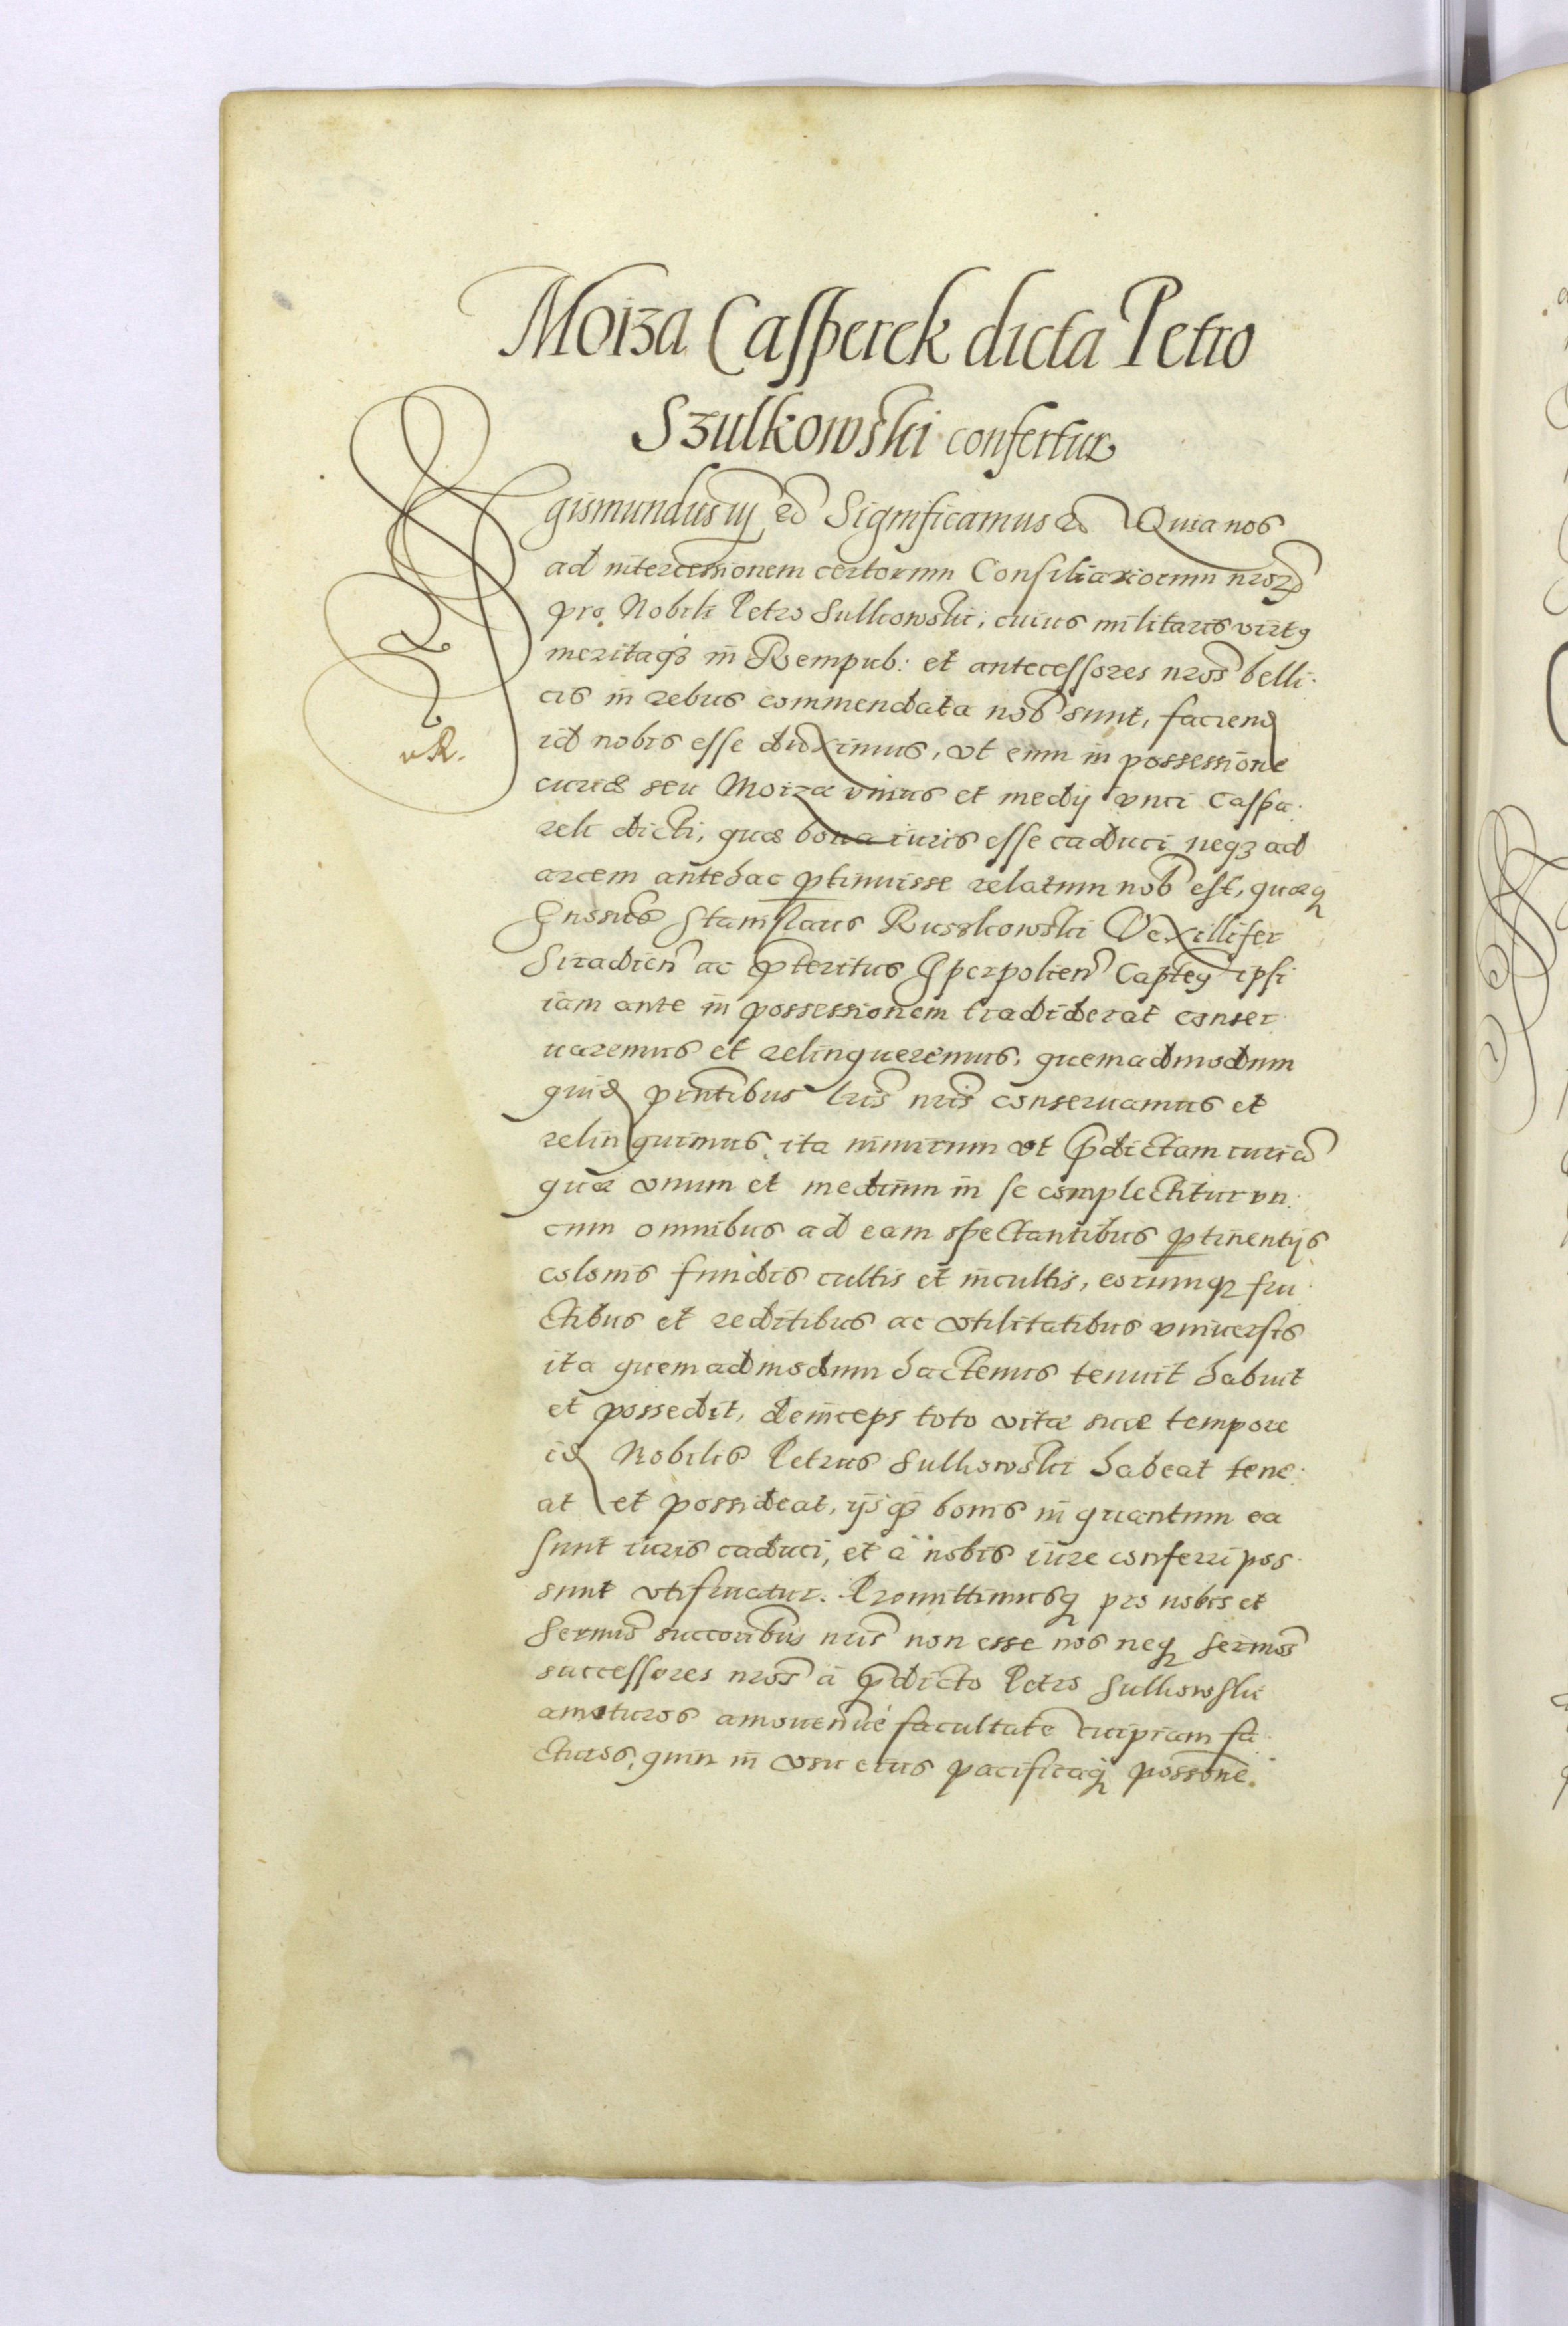 Moiza Casperek dicta Petro
Szulkowski confertur
Sigismundus iij etc Significamus etc Quia nos
ad intercessionem certorum Consiliariorum nrorz
pro Nobili Petro Sulkowski, cuius militaris virtus
meritaqz in Rempub: et antecessores nros belli
cis in rebus commendata nob sunt, faciend
id nobis esse duximus, vt eum in possessione
curiæ seu Moizæ vnius et medij vnci Caspa
rek dicti, quæ bona iuris esse caduci neqz ad
arcem antehac ptinuisse relatum nob est, quæq
Gnosus Stanislaus Ruszkowski Vexillifer
Siradien ac pteritus Hperpolien Capteus ipsi
iam ante in possessionem tradiderat conser
uaremus et relinqueremus, quemadmodum
quid pntibus lris nris conseruamus et
relinquimus, ita nimirum vt pdictam curia
quæ vnum et medium in se complectitur vn:
cum omnibus ad eam spectantibus ptinentijs
colonis fundis cultis et incultis, eorumq fru
ctibus et reditibus ac vtilitatibus vniuersis
ita quemadmodum hactenus tenuit habuit
et possedit, deinceps toto vitæ suæ tempore
id Nobilis Petrus Sulkowski habeat tene
at et possideat, ijsqz bonis in quantum ea
sunt iuris caduci, et à nobis iure conferri pos
sunt vtifruatur. Promittimusq pro nobis et
Sermis succoribus nris non esse nos neq sermos
successores nros à pdicto Petro Sulkowski
amoturos amouendivé facultate cuipiam fa
cturos, quin in vsu eius pacificaq possone.
vR.